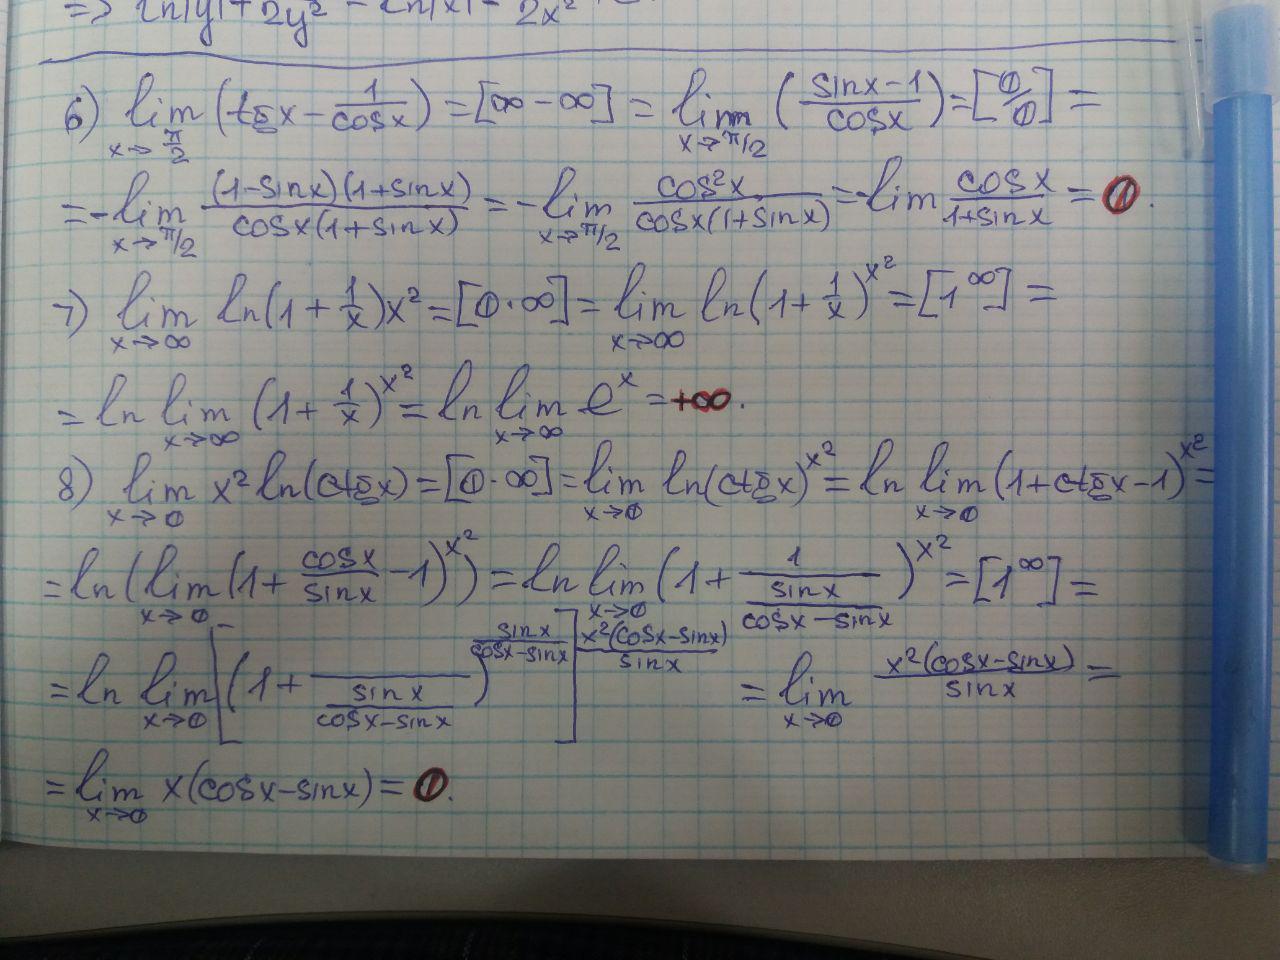 => ln|y| + 1/2y² = ln|x| - 1/2x²
6) lim x→π/2 (tgx - 1/cosx) = [∞ - ∞] = lim x→π/2 (sinx-1/cosx) = [0/0] =
= -lim x→π/2 (1-sinx)(1+sinx)/cosx(1+sinx) = -lim x→π/2 cos²x/cosx(1+sinx) = -lim cosx/1+sinx = 0.
7) lim x→∞ ln(1 + 1/x)x² = [0·∞] = lim x→∞ ln(1 + 1/x)^x² = [1^∞] =
= ln lim x→∞ (1 + 1/x)^x² = ln lim x→∞ e^x = +∞.
8) lim x→0 x² ln(ctgx) = [0·∞] = lim x→0 ln(ctgx)^x² = ln lim x→0 (1+ctgx-1)^x² =
= ln(lim x→0 (1 + cosx/sinx - 1)^x²) = ln lim x→0 (1 + 1/(sinx/(cosx-sinx)))^x² = [1^∞] =
= ln lim x→0 [(1 + /(sinx/(cosx-sinx)))^(sinx/(cosx-sinx))]^(x²(cosx-sinx)/sinx) = lim x→0 x²(cosx-sinx)/sinx =
= lim x→0 x(cosx-sinx) = 0.